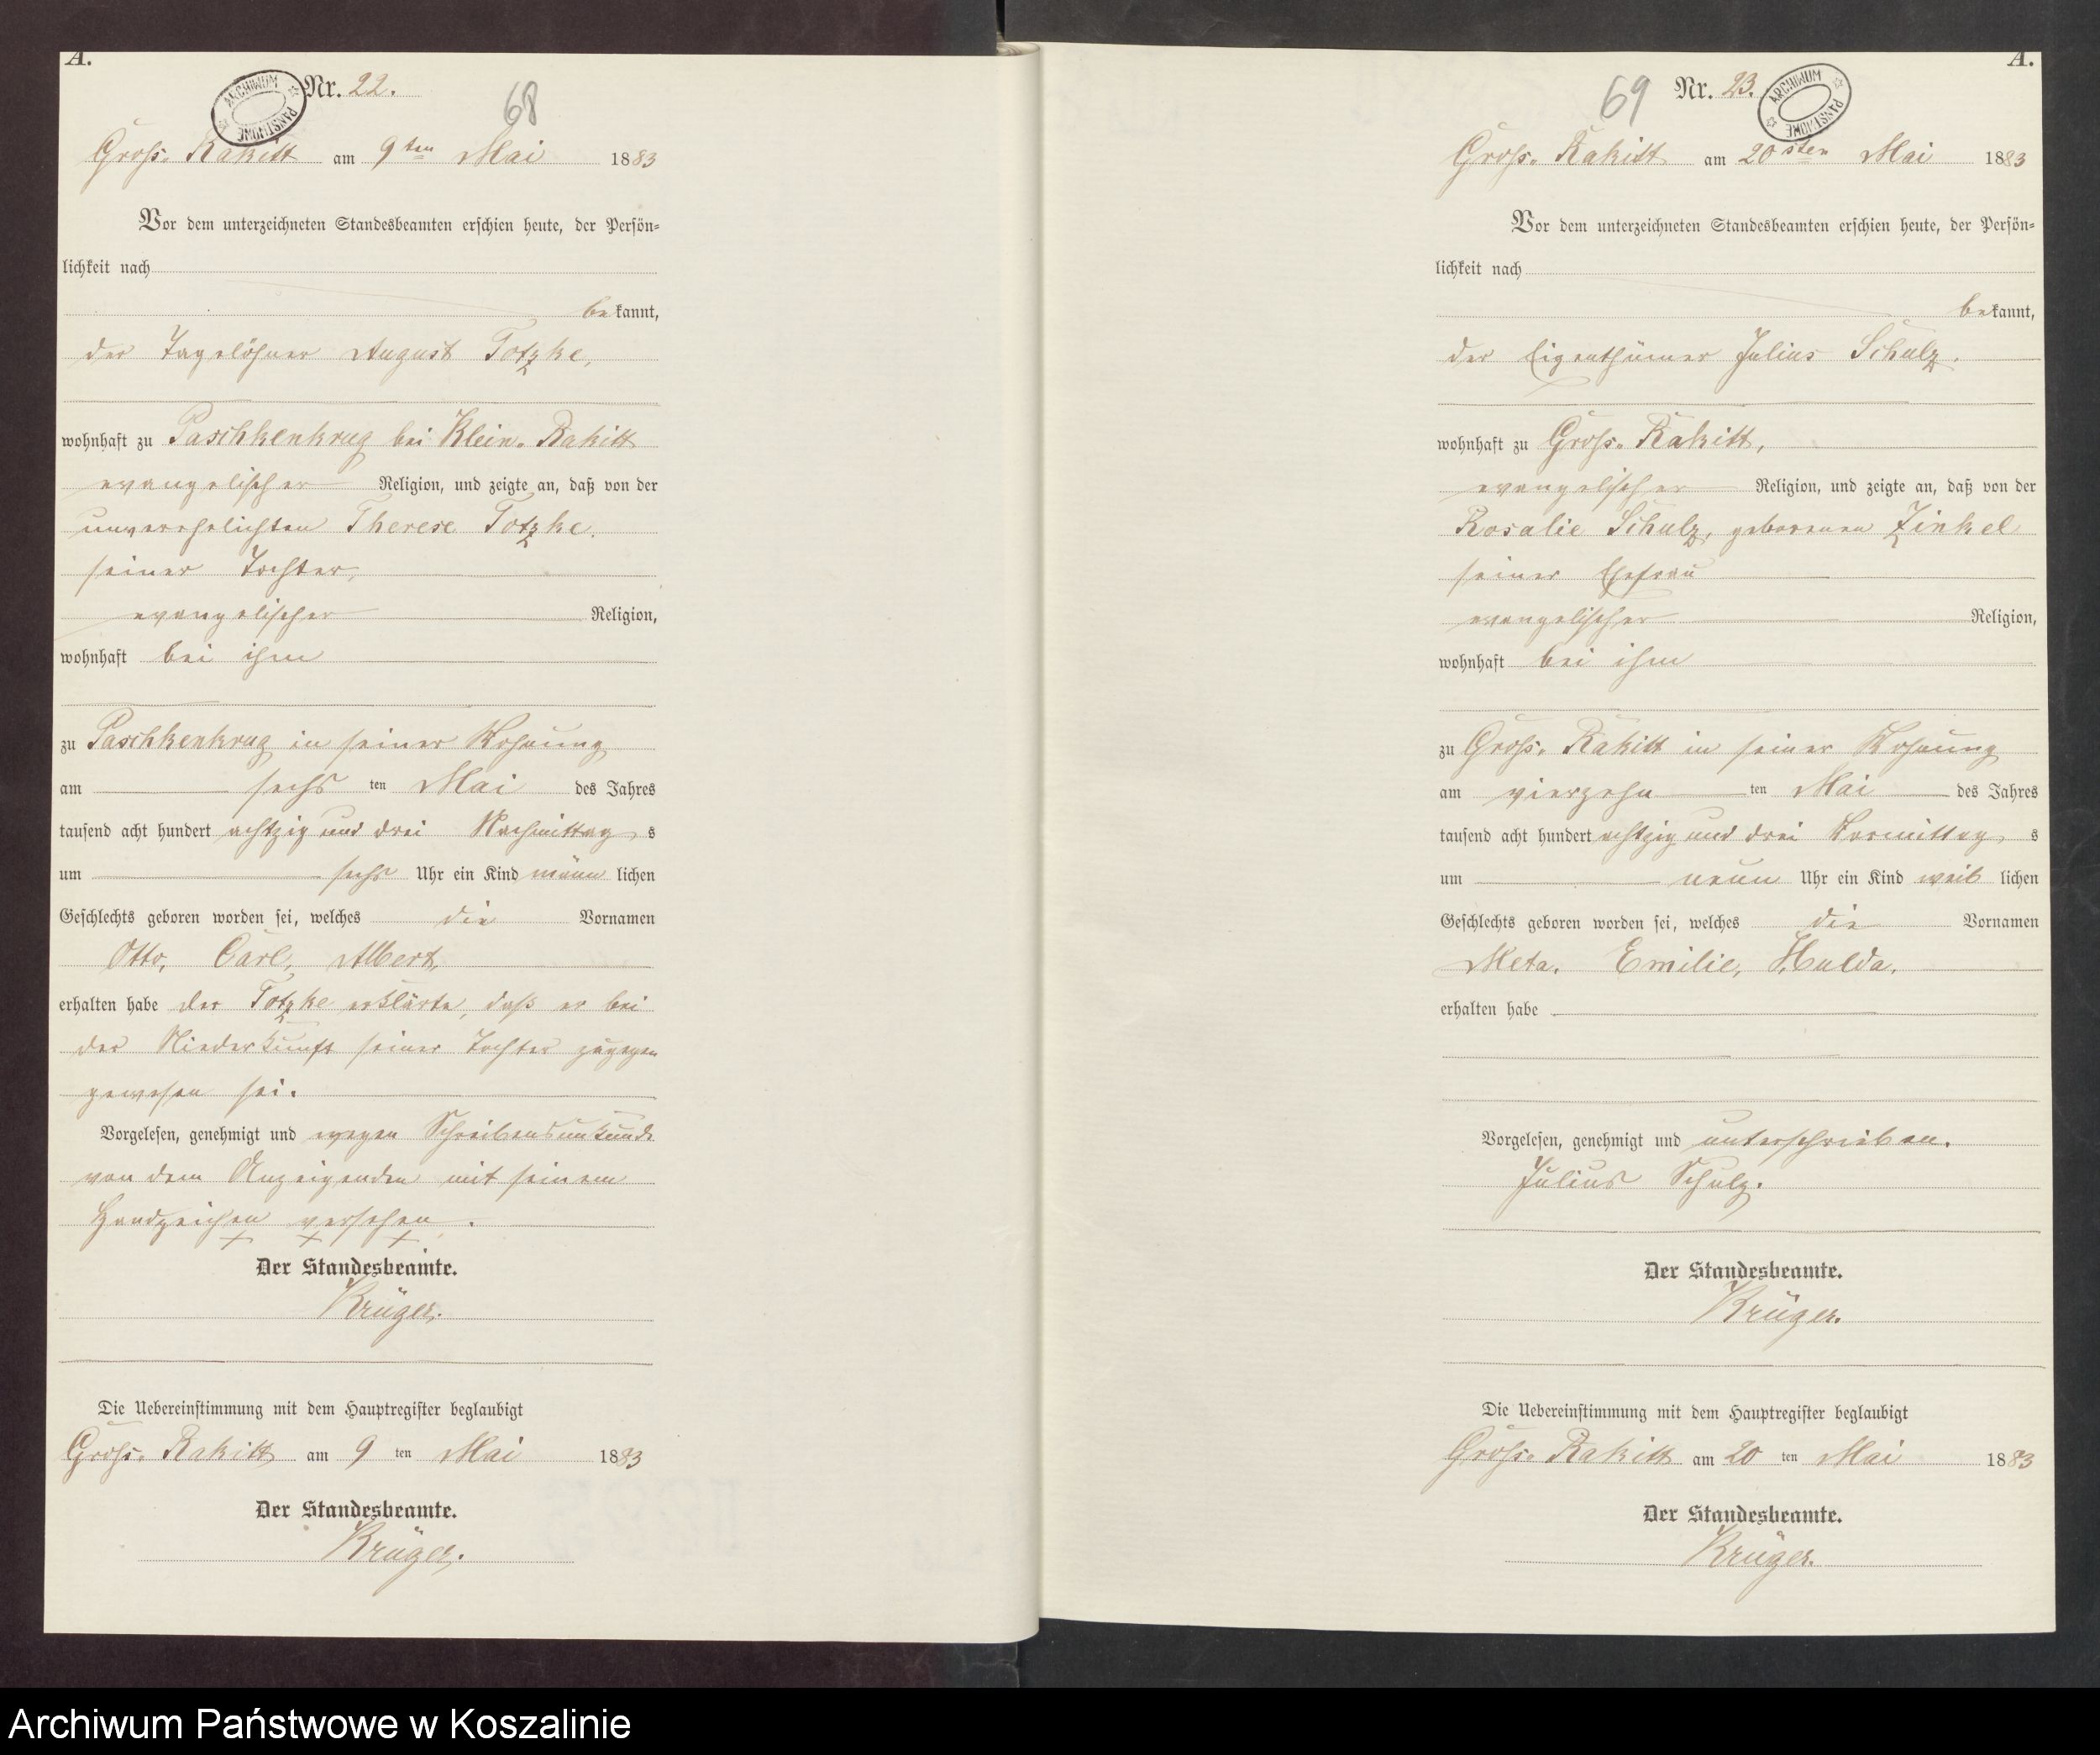 A.
Nr. 22.
68
ARCHIWUM PAŃSTWOWE
Groß. Rakitt am 9ten Mai 1883
Vor dem unterzeichneten Standesbeamten erschien heute, der Persön-
lichkeit nach
bekannt,
der Tagelöhner August Totzke,
wohnhaft zu Paschkenkrug bei Klein. Rakitt
evangelischer Religion, und zeigte an, daß von der
unverehelichten Therese Totzke.
seiner Tochter,
evangelischer Religion,
wohnhaft bei ihm
zu Paschkenkrug in seiner Wohnung
am sechs ten Mai des Jahres
tausend acht hundert achtzig und drei Nachmittag s
um sechs Uhr ein Kind männ lichen
Geschlechts geboren worden sei, welches die Vornamen
Otto, Carl, Albert,
erhalten habe der Totzke erklärte, daß er bei
der Niederkunft seiner Tochter zugegen
gewesen sei.
Vorgelesen, genehmigt und wegen Schreibensunkunde
von dem Anzeigenden mit seinem
Handzeichen versehen.
+ + +
Der Standesbeamte.
Krüger.
Die Uebereinstimmung mit dem Hauptregister beglaubigt
Groß. Rakitt am 9 ten Mai 1883
Der Standesbeamte.
Krüger.
A.
69
Nr. 23.
ARCHIWUM PAŃSTWOWE
Groß. Rakitt am 20sten Mai 1883
Vor dem unterzeichneten Standesbeamten erschien heute, der Persön-
lichkeit nach
bekannt,
der Eigenthümer Julius Schulz.
wohnhaft zu Groß. Rakitt,
evangelischer Religion, und zeigte an, daß von der
Rosalie Schulz, geborenen Zinkel
seiner Ehefrau
evangelischer Religion,
wohnhaft bei ihm
zu Groß. Rakitt in seiner Wohnung
am vierzehn ten Mai des Jahres
tausend acht hundert achtzig und drei Vormittag s
um neun Uhr ein Kind weib lichen
Geschlechts geboren worden sei, welches die Vornamen
Meta. Emilie, Hulda.
erhalten habe
Vorgelesen, genehmigt und unterschrieben.
Julius Schulz.
Der Standesbeamte.
Krüger.
Die Uebereinstimmung mit dem Hauptregister beglaubigt
Groß. Rakitt am 20 ten Mai 1883
Der Standesbeamte.
Krüger.
Archiwum Państwowe w Koszalinie